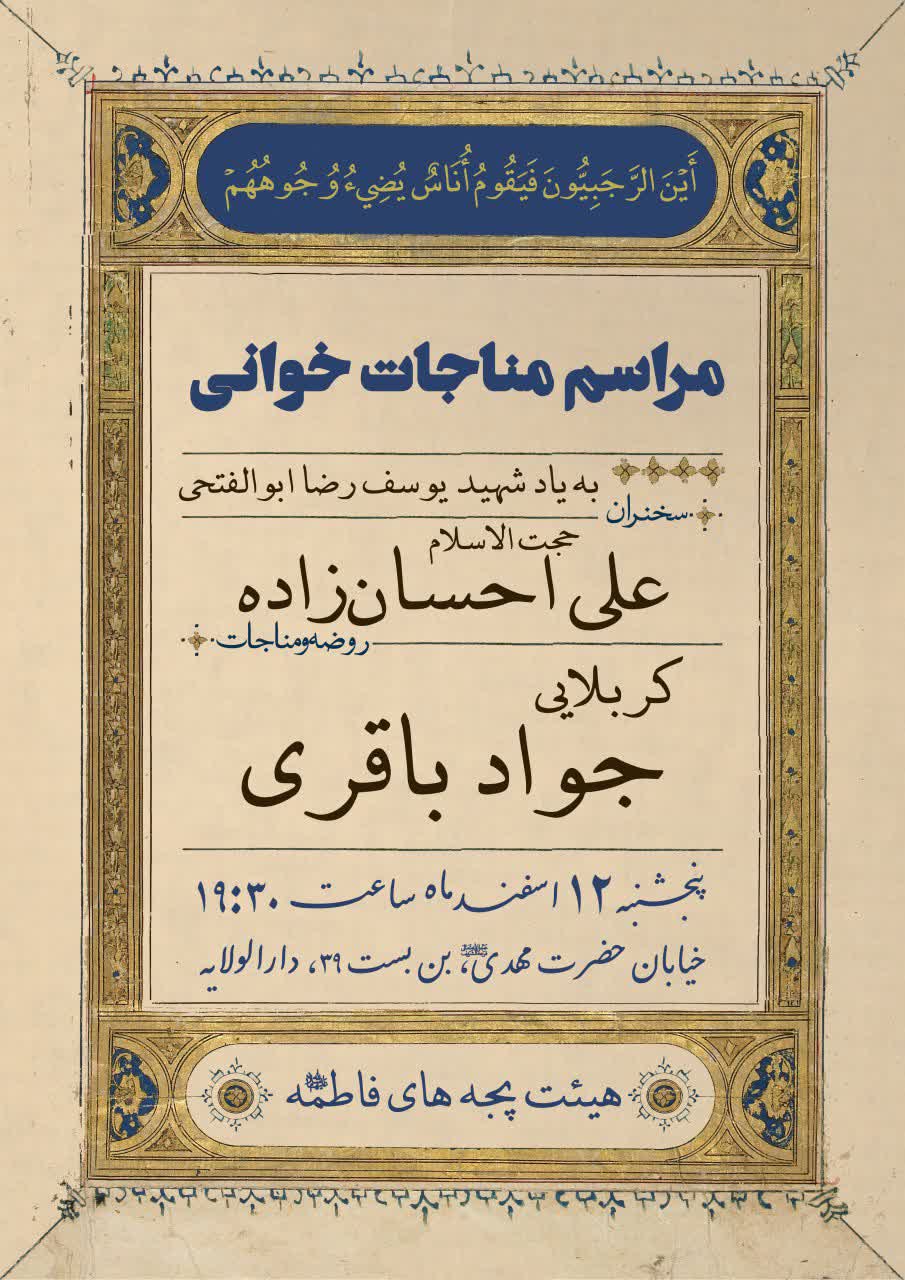 أَيْنَ الرَّجَبِيُّونَ فَيَقُومُ أُنَاسٌ يُضِيءُ وُجُوهُهُمْ
مراسم مناجات خوانی
به یاد شهید یوسف رضا ابوالفتحی
سخنران
حجت الاسلام
علی احسان‌زاده
روضه و مناجات
کربلایی
جواد باقری
پنجشنبه ۱۲ اسفند ماه ساعت ۱۹:۳۰
خیابان حضرت مهدی، بن بست ۳۹، دارالولایه
هیئت بچه های فاطمه